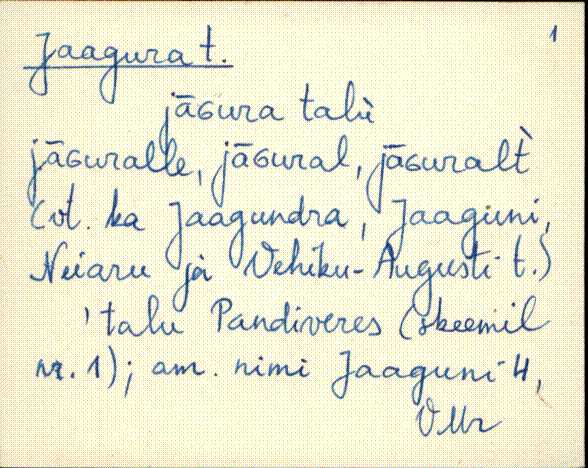 1
Jaagura t.
jāɢura talù
jāɢuralle, jāɢural, jāɢuralt̀
(vt. ka Jaagundra, Jaaguni,
Neiaru ja Vehiku-Augusti t.)
'talu Pandiveres (skeemil
nr. 1); am. nimi Jaaguni 4,
VMr